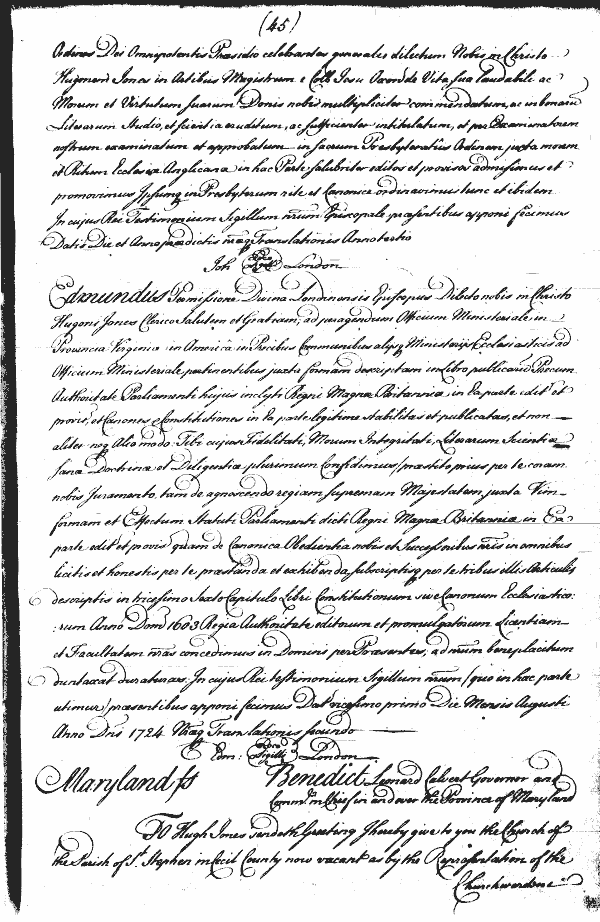 (45)
Ordines Dei Omnipotentis Præsidio celebrantes generales dilectum Nobis in Christo
Hugonem Jones in Artibus Magistrum e Coll. Jesu Oxon de Vita sua laudabili ac
Morum et Virtutum suarum Donis nobis multipliciter commendatum, ac in bonarū
Literarum Studio, et scientia eruditum, ac sufficienter intitulatum, et per Examinatorem
nostrum examinatum et approbatum in sacrum Presbyteratus Ordinem juxta morem
et Ritum Ecclesiæ Anglicanæ in hac Parte salubriter editos et provisos admisimus et
promovimus Ipsumq in Presbyterum rite et Canonice ordinavimus tunc et ibidem
In cujus Rei Testimonium Sigillum nrum Episcopale præsentibus apponi fecimus
Datis Die et Anno prædictis nræq Translationis Anno tertio
Joh London
Edmundus Permissione Divina Londinensis Episcopus Dilecto nobis in Christo
Hugoni Jones Clerico Salutem et Gratiam, ad peragendum Officium Ministeriale in
Provincia Virginia in America in Precibus Communibus alijsq Ministerijs Ecclesiasticis ad
Officium Ministeriale pertinentibus juxta formam descriptam in Libro publicarū Precum
Authoritate Parliamenti hujus inclyti Regni Magnæ Britanniæ in Ea parte edit et
provis, et Canones et Constitutiones in Ea parte legitime stabilitas et publicatas, et non
aliter neq Alio modo, Tibi cujus Fidelitati, Morum Integritati, Literarum Scientiæ
sana Doctrinæ et Diligentiæ plurimum Confidimus (præstito prius per te coram
nobis Juramento, tam de agnoscendo regiam supremam Majestatem, juxta Vim
formam et Effectum Statuti Parliamenti dicti Regni Magnæ Britanniæ in Ea
parte edit et provis quam de Canonica Obedientia nobis et Successoribus nris in omnibus
licitis et honestis per te præstanda et exhibenda, subscriptisq per te tribus illis Articulis
descriptis in tricesimo Sexto Capitulo Libri Constitutionum sive Canonum Ecclesiastico:
:rum Anno Dom 1603 Regia Authoritate editorum et promulgatorum Licentiam
et Facultatem nras concedimus in Dominis per Præsentes, ad nrum beneplacitum
duntaxat duraturas: In cujus Rei testimonium Sigillum nrum (quo in hac parte
utimur) præsentibus apponi fecimus Dat vicesimo primo Die Mensis Augusti
Anno Dni 1724 Nræq Translationis secundo
Edm: London
Maryland ss Benedict Leonard Calvert Governor and
Comm in Chief in and over the Province of Maryland
To Hugh Jones sendeth Greeting I hereby give to you the Church of
the Parish of St Stephen in Cecil County now vacant as by the Representation of the
Churchwardens